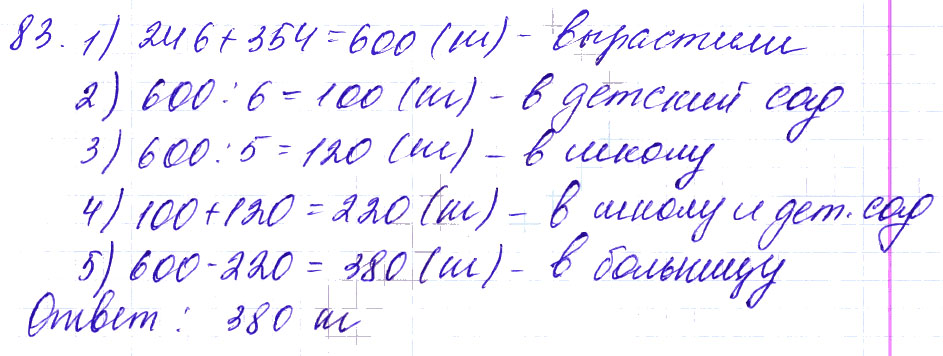 83. 1) 246+354=600 (т) - вырастили
2) 600:6=100 (т) - в детский сад
3) 600:5=120 (т) - в школу
4) 100+120=220 (т) - в школу и дет. сад
5) 600-220=380 (т) - в больницу
Ответ: 380 т